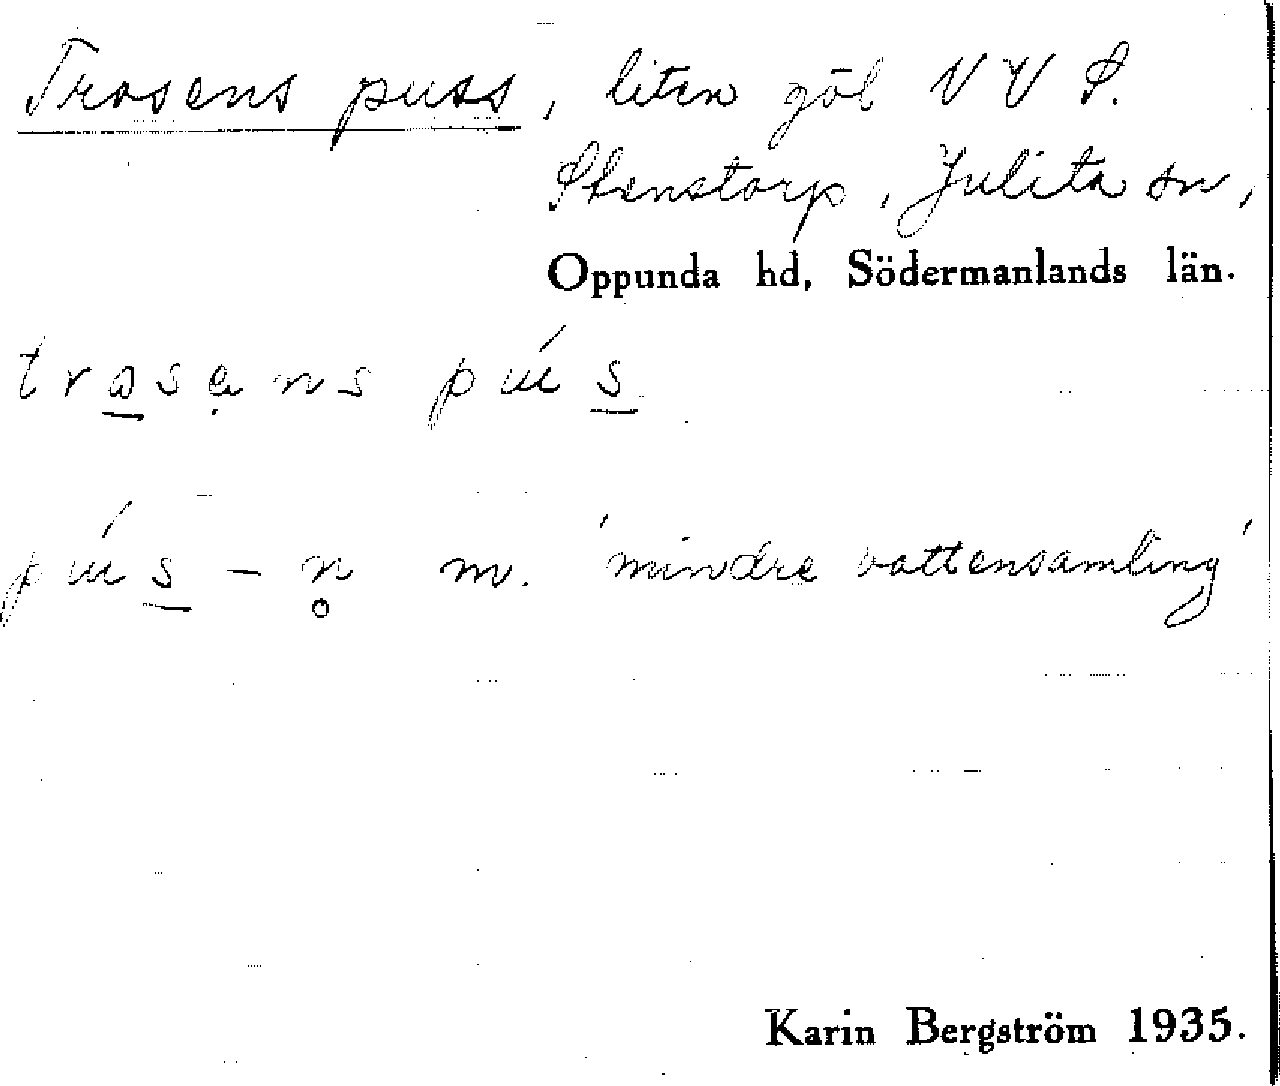 Trosens puss, liten göl V V S.
Stenstorp, Julita sn,
Oppunda hd, Södermanlands län.
trosens pus
pus - n m. 'mindre vattensamling'
Karin Bergström 1935.